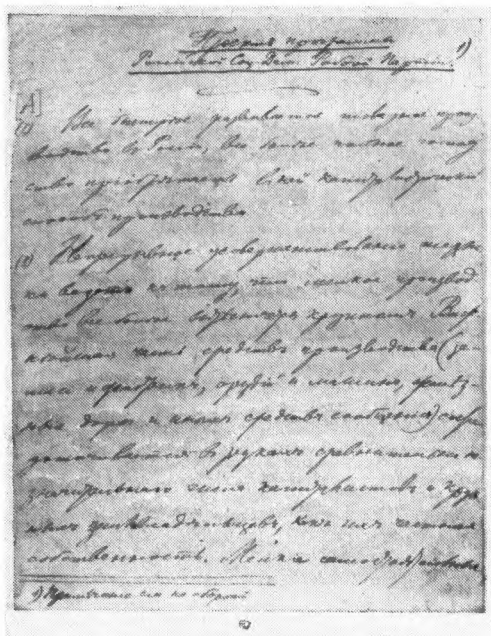 Проект программы
Российской Соц. Дем. Рабочей Партии. 1)
А]
(I) Все быстрее развивается товарное произ-
водство в России, все более полное господ-
ство приобретает в ней капиталистический
способ производства.
(II) Непрерывное усовершенствование техни-
ки ведет к тому, что мелкое производ-
ство все более вытесняется крупным. Важ-
нейшая часть средств производства (зем-
ли и фабрик, орудий и машин, желез-
ных дорог и иных средств сообщения) сосре-
доточивается в руках сравнительно не-
значительного числа капиталистов и круп-
ных землевладельцев, как их частная
собственность. Мелкие самостоятельные
1) Примечание см на обороте